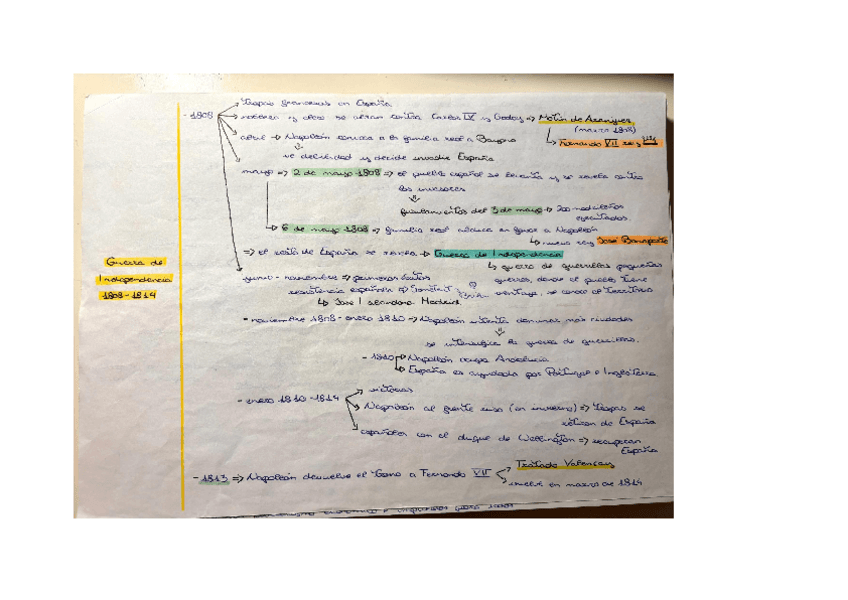 Guerra de
Independencia
1808-1814
- 1808 → Tropas francesas en España
→ nobleza y clero se alzan contra Carlos IV y Godoy ⇒ Motín de Aranjuez
(marzo 1808)
↳ Fernando VII rey
→ abril → Napoleón convoca a la familia real a Bayona
⇓
ve debilidad y decide invadir España
mayo ⇒ 2 de mayo 1808 ⇒ el pueblo español se levanta y se revela contra
los invasores
⇓
fusilamientos del 3 de mayo → madrileños
ejecutados.
↳ 6 de mayo 1808 ⇒ familia real abdica en favor a Napoleón
↳ nuevo rey José Bonaparte
⇒ el resto de España se revela → Guerra de Independencia
↳ guerra de guerrillas pequeñas
junio - noviembre ⇒ primeros
guerras, donde el pueblo tiene
resistencia española
ventaja, se conoce el territorio
↳ José I abandona Madrid
- noviembre 1808 - enero 1810 → Napoleón intenta dominar más ciudades
⇓
se intensifica la guerra de guerrillas.
- 1810 → Napoleón ocupa Andalucía
↳ España es ayudada por Portugal e Inglaterra
- enero 1810 - 1814 → victorias
→ Napoleón al frente ruso (en invierno) ⇒ tropas se
retiran de España
→ españoles con el duque de Wellington ⇒ recuperan
España
- 1813 ⇒ Napoleón devuelve el trono a Fernando VII
Tratado Valençay
vuelve en marzo de 1814